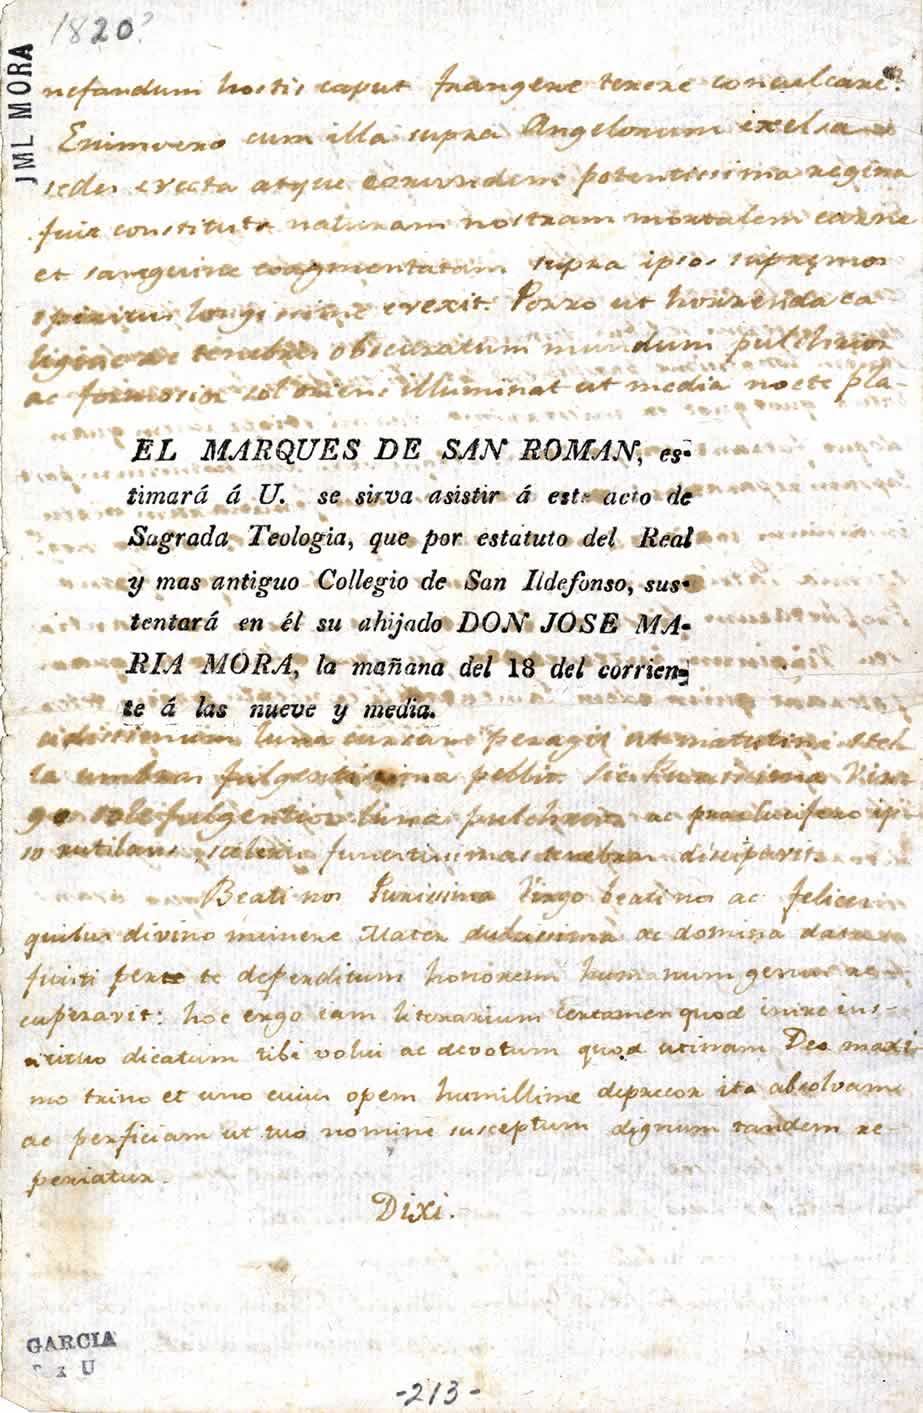 1820?
JML MORA
nefandum hostis caput frangere terere conculcare?
Enimvero cum illa supra Angelorum ixelsa
sedes erecta atque eorumdem potentissima regina
fuit constituta naturam nostram mortalem carne
et sanguine coagmentatam supra ipsos supremos
spiritus longissime erexit. Porro ut horrenda ca
ligine ac tenebris obscuratum mundum pulchrior
ac formosior sol oriens illuminat ut media nocte pla-
EL MARQUES DE SAN ROMAN, es-
timará á U. se sirva asistir á este acto de
Sagrada Teologia, que por estatuto del Real
y mas antiguo Collegio de San Ildefonso, sus-
tentará en él su ahijado DON JOSE MA-
RIA MORA, la mañana del 18 del corrien-
te á las nueve y media.
cidissimum luna cursum peragit ut matutina stel
la umbras fulgentissima pellit sic Purissima Vir
go sole fulgentior luna pulchrior ac praelucifero ip
so rutilans sceleris funestissimas tenebras discipavit.
Beati nos Purissima Virgo beati nos ac felices
quibus divino munere Mater dulcissima ac domina data
fuisti per te deperditum honorem humanum genus re-
cuperavit: hoc ergo iam literarium certamen quod inire ins-
tituo dicatum tibi volui ac devotum quod utinam Deo maxi
mo trino et uno cuius opem humillime deprecor ita absolvam
ac perficiam ut tuo nomine susceptum dignum tandem re-
periatur.
Dixi.
GARCIA
-213-